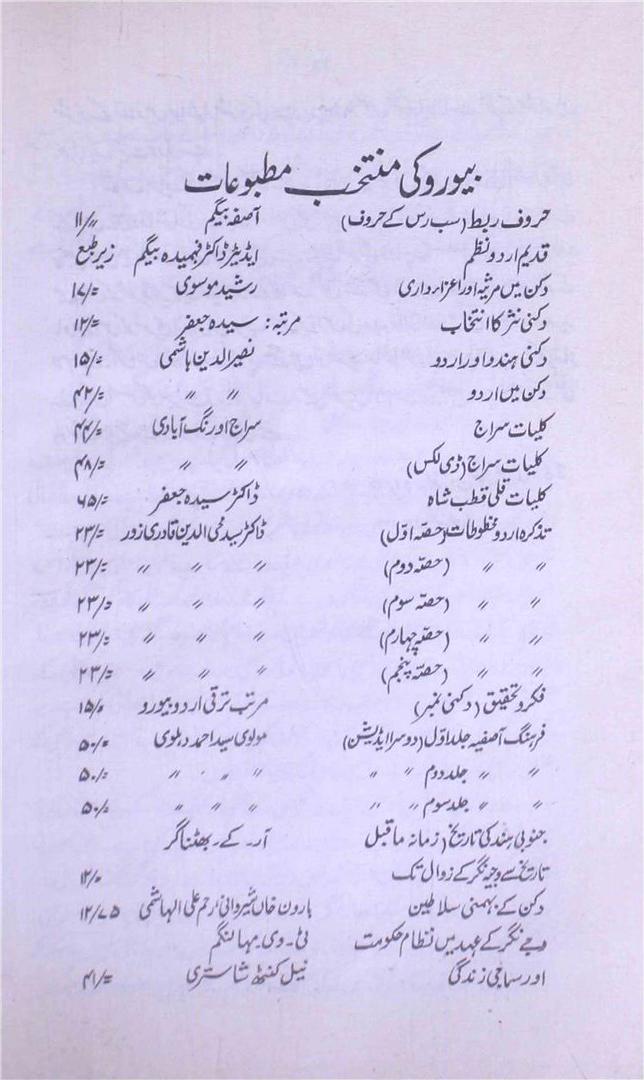 بیورو کی منتخب مطبوعات
حروف ربط (سب رس کے حروف) آصفہ بیگم ۱۱/=
قدیم اردو نظم ایڈیٹر ڈاکٹر فہمیدہ بیگم زیر طبع
دکن میں مرثیہ اور اعزاداری رشید موسوی ۱۷/=
دکنی نثر کا انتخاب مرتبہ: سیدہ جعفر ۱۲/=
دکنی ہندو اور اردو نصیر الدین ہاشمی ۱۵/=
دکن میں اردو 〃 〃 ۴۲/=
کلیات سراج سراج اورنگ آبادی ۴۴/=
کلیات سراج (ڈی لکس) 〃 〃 ۴۸/=
کلیات قلی قطب شاہ ڈاکٹر سیدہ جعفر ۶۵/=
تذکرہ اردو مخطوطات (حصّہ اوّل) ڈاکٹر سید محی الدین قادری زور ۲۳/=
〃 〃 (حصّہ دوم) 〃 〃 〃 ۲۳/=
〃 〃 (حصّہ سوم) 〃 〃 〃 ۲۳/=
〃 〃 (حصّہ چہارم) 〃 〃 〃 ۲۳/=
〃 〃 (حصّہ پنجم) 〃 〃 〃 ۲۳/=
فکر و تحقیق (دکنی نمبر) مرتب ترقی اردو بیورو ۱۵/=
فرہنگ آصفیہ جلد اوّل (دوسرا ایڈیشن) مولوی سید احمد دہلوی ۵۰/=
〃 〃 جلد دوم 〃 〃 〃 〃 〃 ۵۰/=
〃 〃 جلد سوم 〃 〃 〃 〃 〃 ۵۰/=
جنوبی ہند کی تاریخ (زمانہ ماقبل آر۔ کے۔ بھٹناگر
تاریخ سے وجیہ نگر کے زوال تک ۱۲/=
دکن کے بہمنی سلاطین ہارون خاں شیروانی / رحم علی الہاشمی ۱۲/۷۵
وجے نگر کے عہد میں نظام حکومت ٹی۔ وی۔ مہالنگم
اور سماجی زندگی نیل کنٹھ شاستری ۴۱/=